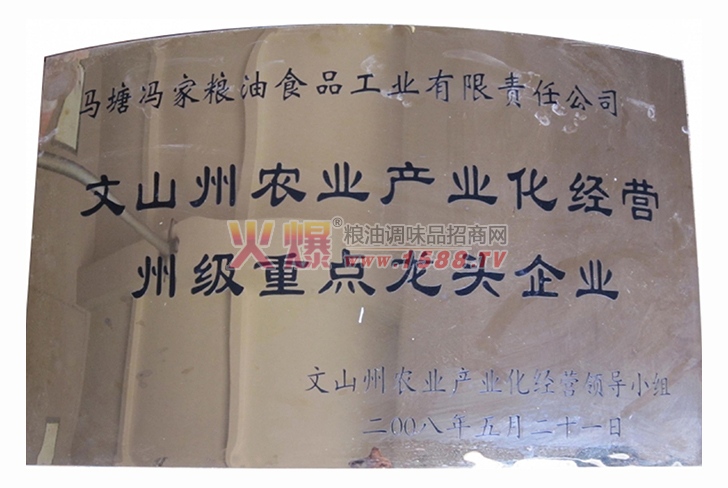 马塘冯家粮油食品工业有限责任公司
文山州农业产业化经营
火爆®粮油调味品招商网
www.1588.TV
州级重点龙头企业
文山州农业产业化经营领导小组
二00八年五月二十一日